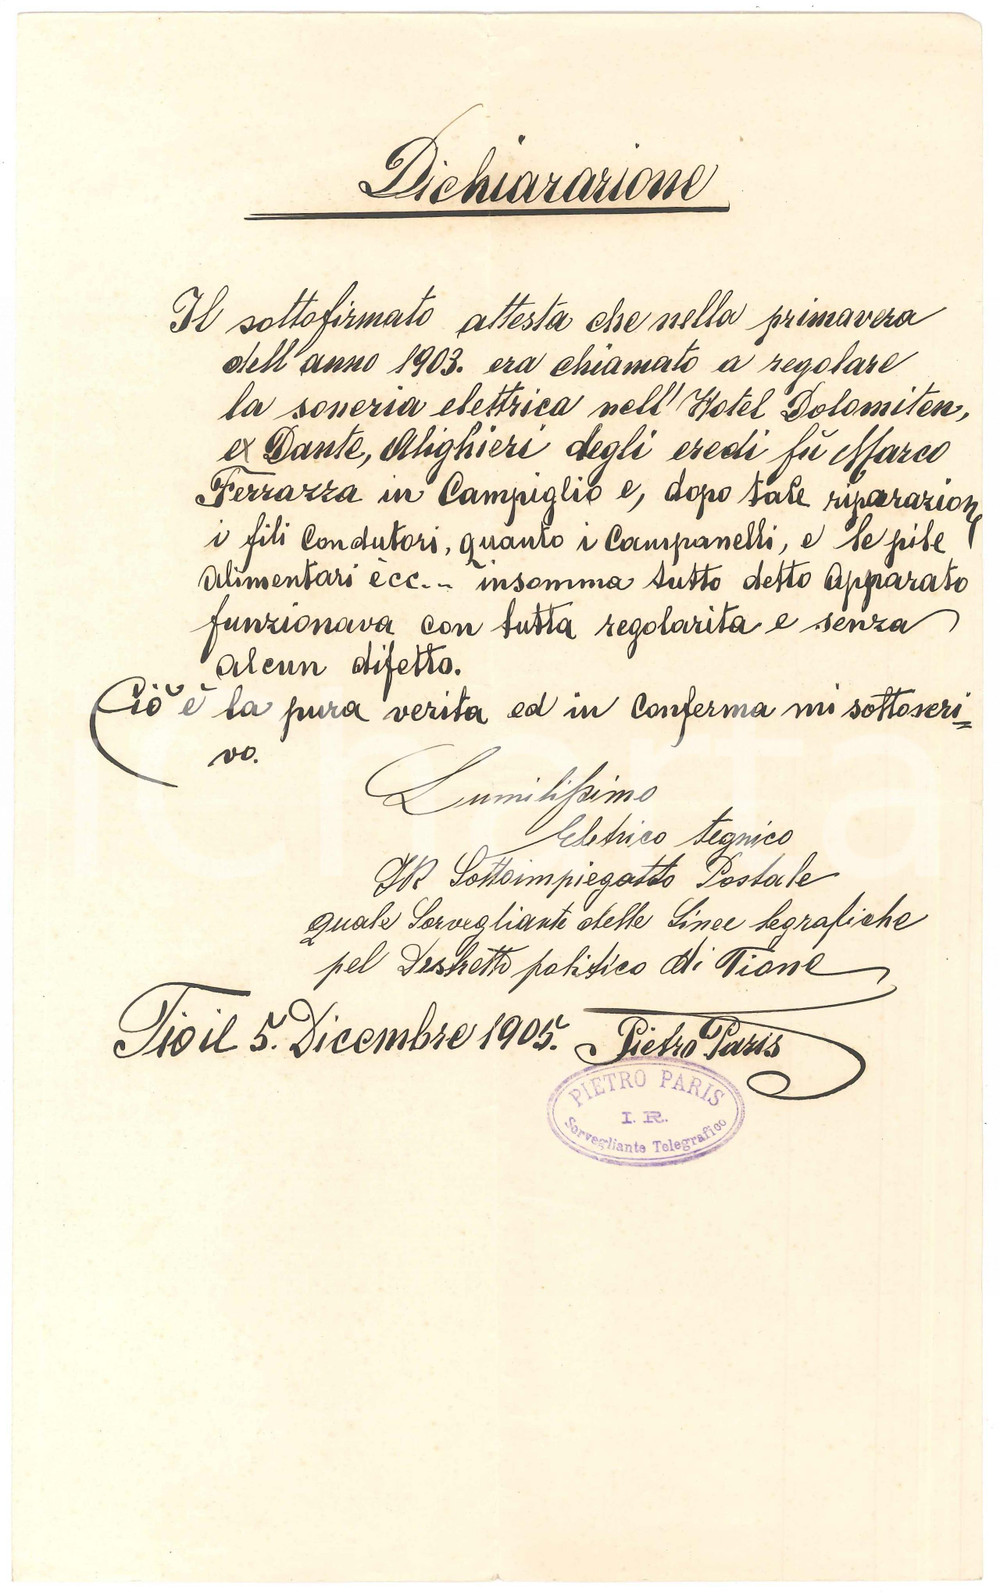 Dichiarazione
Il sottofirmato attesta che nella primavera
dell'anno 1903. era chiamato a regolare
la soneria elettrica nell'Hotel Dolomiten,
ex Dante, Alighieri degli eredi fù Marco
Ferrazza in Campiglio e, dopo tale riparazion
i fili Condutori, quanto i Campanelli, e le pile
alimentari ècc... insomma tutto detto Apparato
funzionava con tutta regolarita e senza
alcun difetto.
Ciò è la pura verita ed in Conferma mi sottoscri=
vo.
Lumilissimo
Eletrico tegnico
IR Sottoimpiegatto Postale
quale Sorvegliante delle Linee legrafiche
pel Distretto politico di Tione
5. Dicembre 1905. Pietro Paris
PIETRO PARIS
I. R.
Sorvegliante Telegrafico